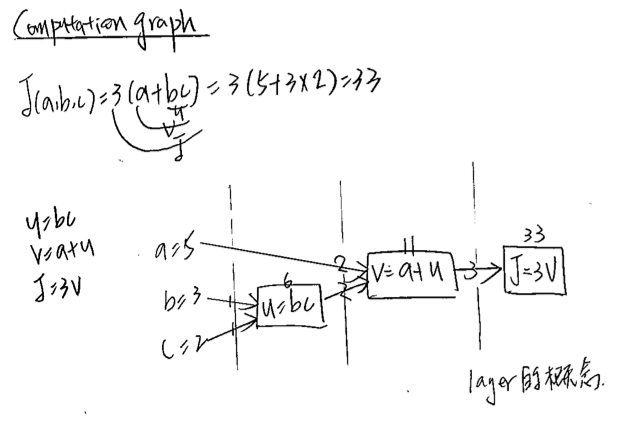 Computation graph
J(a,b,c)=3(a+bc)=3(5+3×2)=33
u
v
J
u=bc
v=a+u
J=3v
a=5
b=3
c=2
6
u=bc
2
2
11
v=a+u
3
33
J=3v
layer的概念.